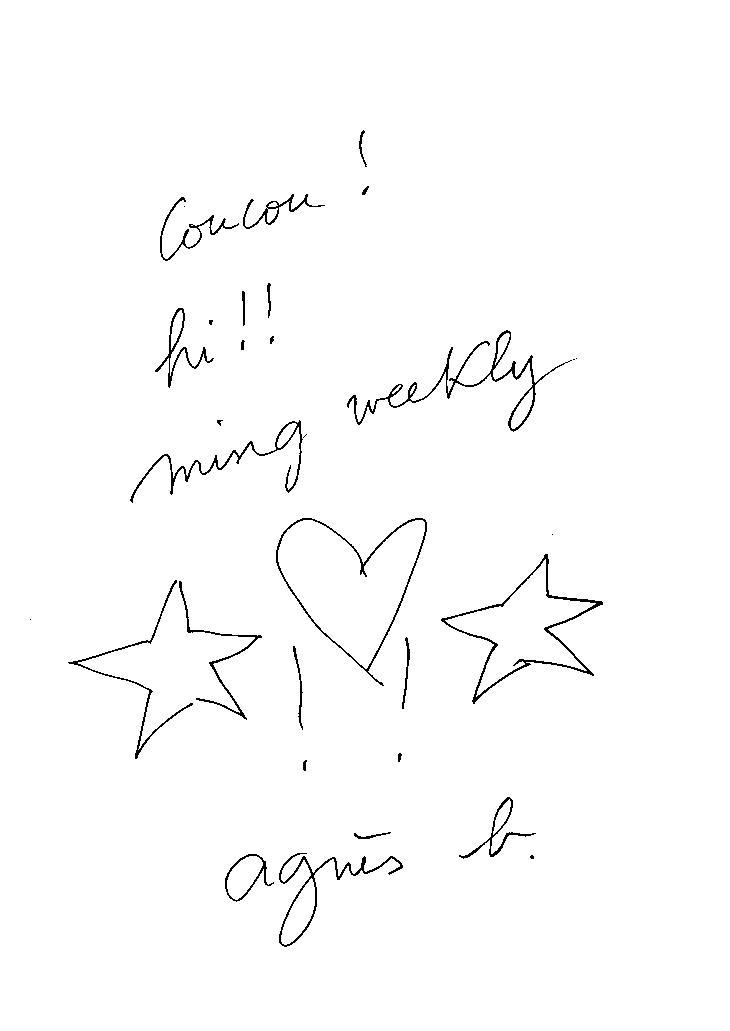 Coucou !
hi !!
ming weekly
! !
agnès b.